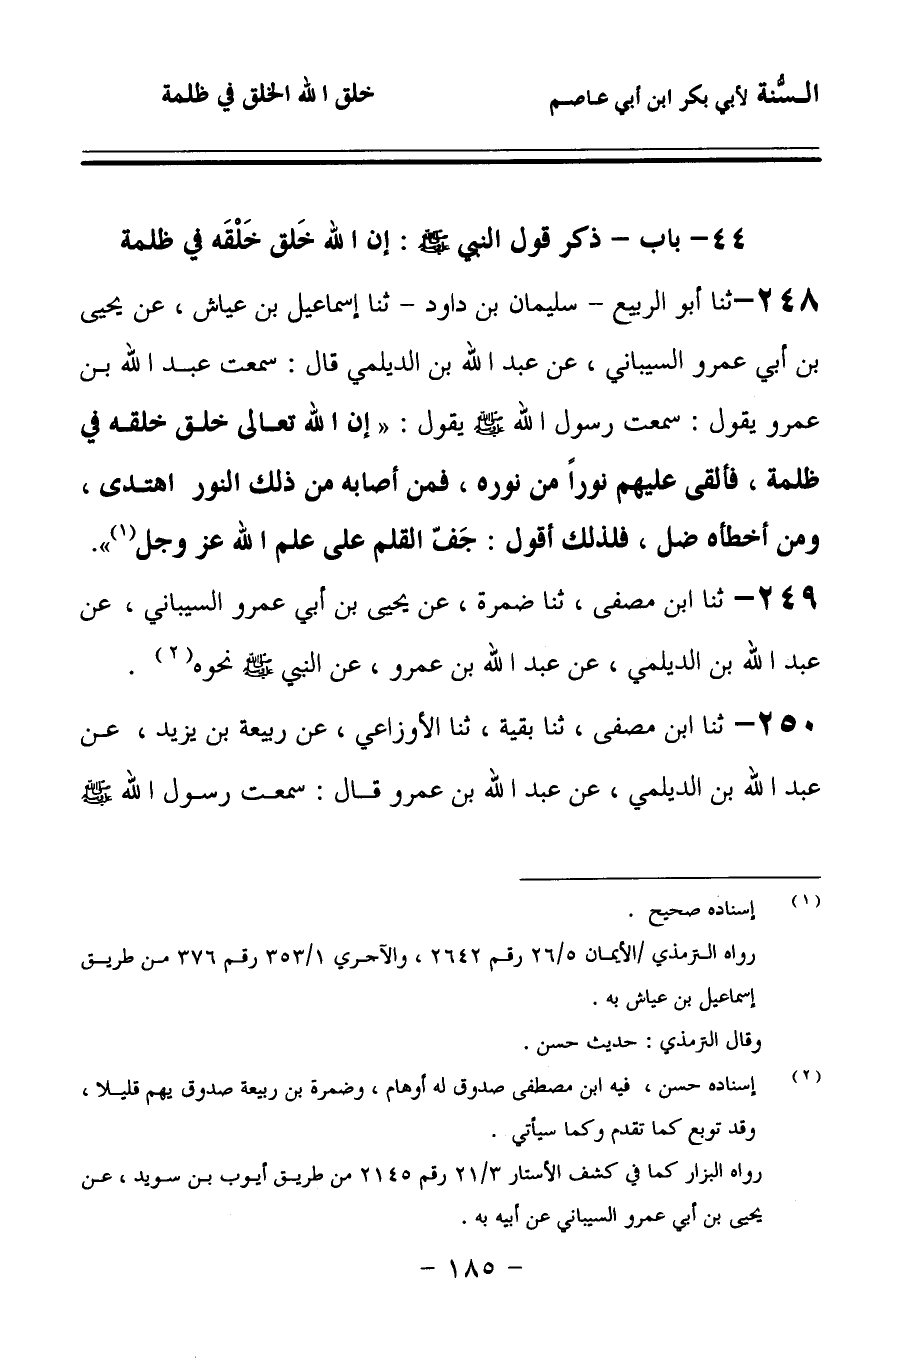 السُّنة لأبي بكر ابن أبي عاصم خلق الله الخلق في ظلمة
٤٤- باب - ذكر قول النبي ﷺ : إن الله خَلق خَلْقَه في ظلمة
٢٤٨-ثنا أبو الربيع - سليمان بن داود - ثنا إسماعيل بن عياش ، عن يحيى
بن أبي عمرو السيباني ، عن عبد الله بن الديلمي قال : سمعت عبد الله بن
عمرو يقول : سمعت رسول الله ﷺ يقول : « إن الله تعالى خلق خلقه في
ظلمة ، فألقى عليهم نوراً من نوره ، فمن أصابه من ذلك النور اهتدى ،
ومن أخطأه ضل ، فلذلك أقول : جَفّ القلم على علم الله عز وجل(١)».
٢٤٩- ثنا ابن مصفى ، ثنا ضمرة ، عن يحيى بن أبي عمرو السيباني ، عن
عبد الله بن الديلمي ، عن عبد الله بن عمرو ، عن النبي ﷺ نحوه(٢) .
٢٥٠- ثنا ابن مصفى ، ثنا بقية ، ثنا الأوزاعي ، عن ربيعة بن يزيد ، عن
عبد الله بن الديلمي ، عن عبد الله بن عمرو قال : سمعت رسول الله ﷺ
(١) إسناده صحيح .
رواه الترمذي /الأيمان ٢٦/٥ رقم ٢٦٤٢ ، والآجري ٣٥٣/١ رقم ٣٧٦ من طريق
إسماعيل بن عياش به .
وقال الترمذي : حديث حسن .
(٢) إسناده حسن ، فيه ابن مصطفى صدوق له أوهام ، وضمرة بن ربيعة صدوق يهم قليلا ،
وقد توبع كما تقدم وكما سيأتي .
رواه البزار كما في كشف الأستار ٢١/٣ رقم ٢١٤٥ من طريق أيوب بن سويد ، عن
يحيى بن أبي عمرو السيباني عن أبيه به .
- ١٨٥ -